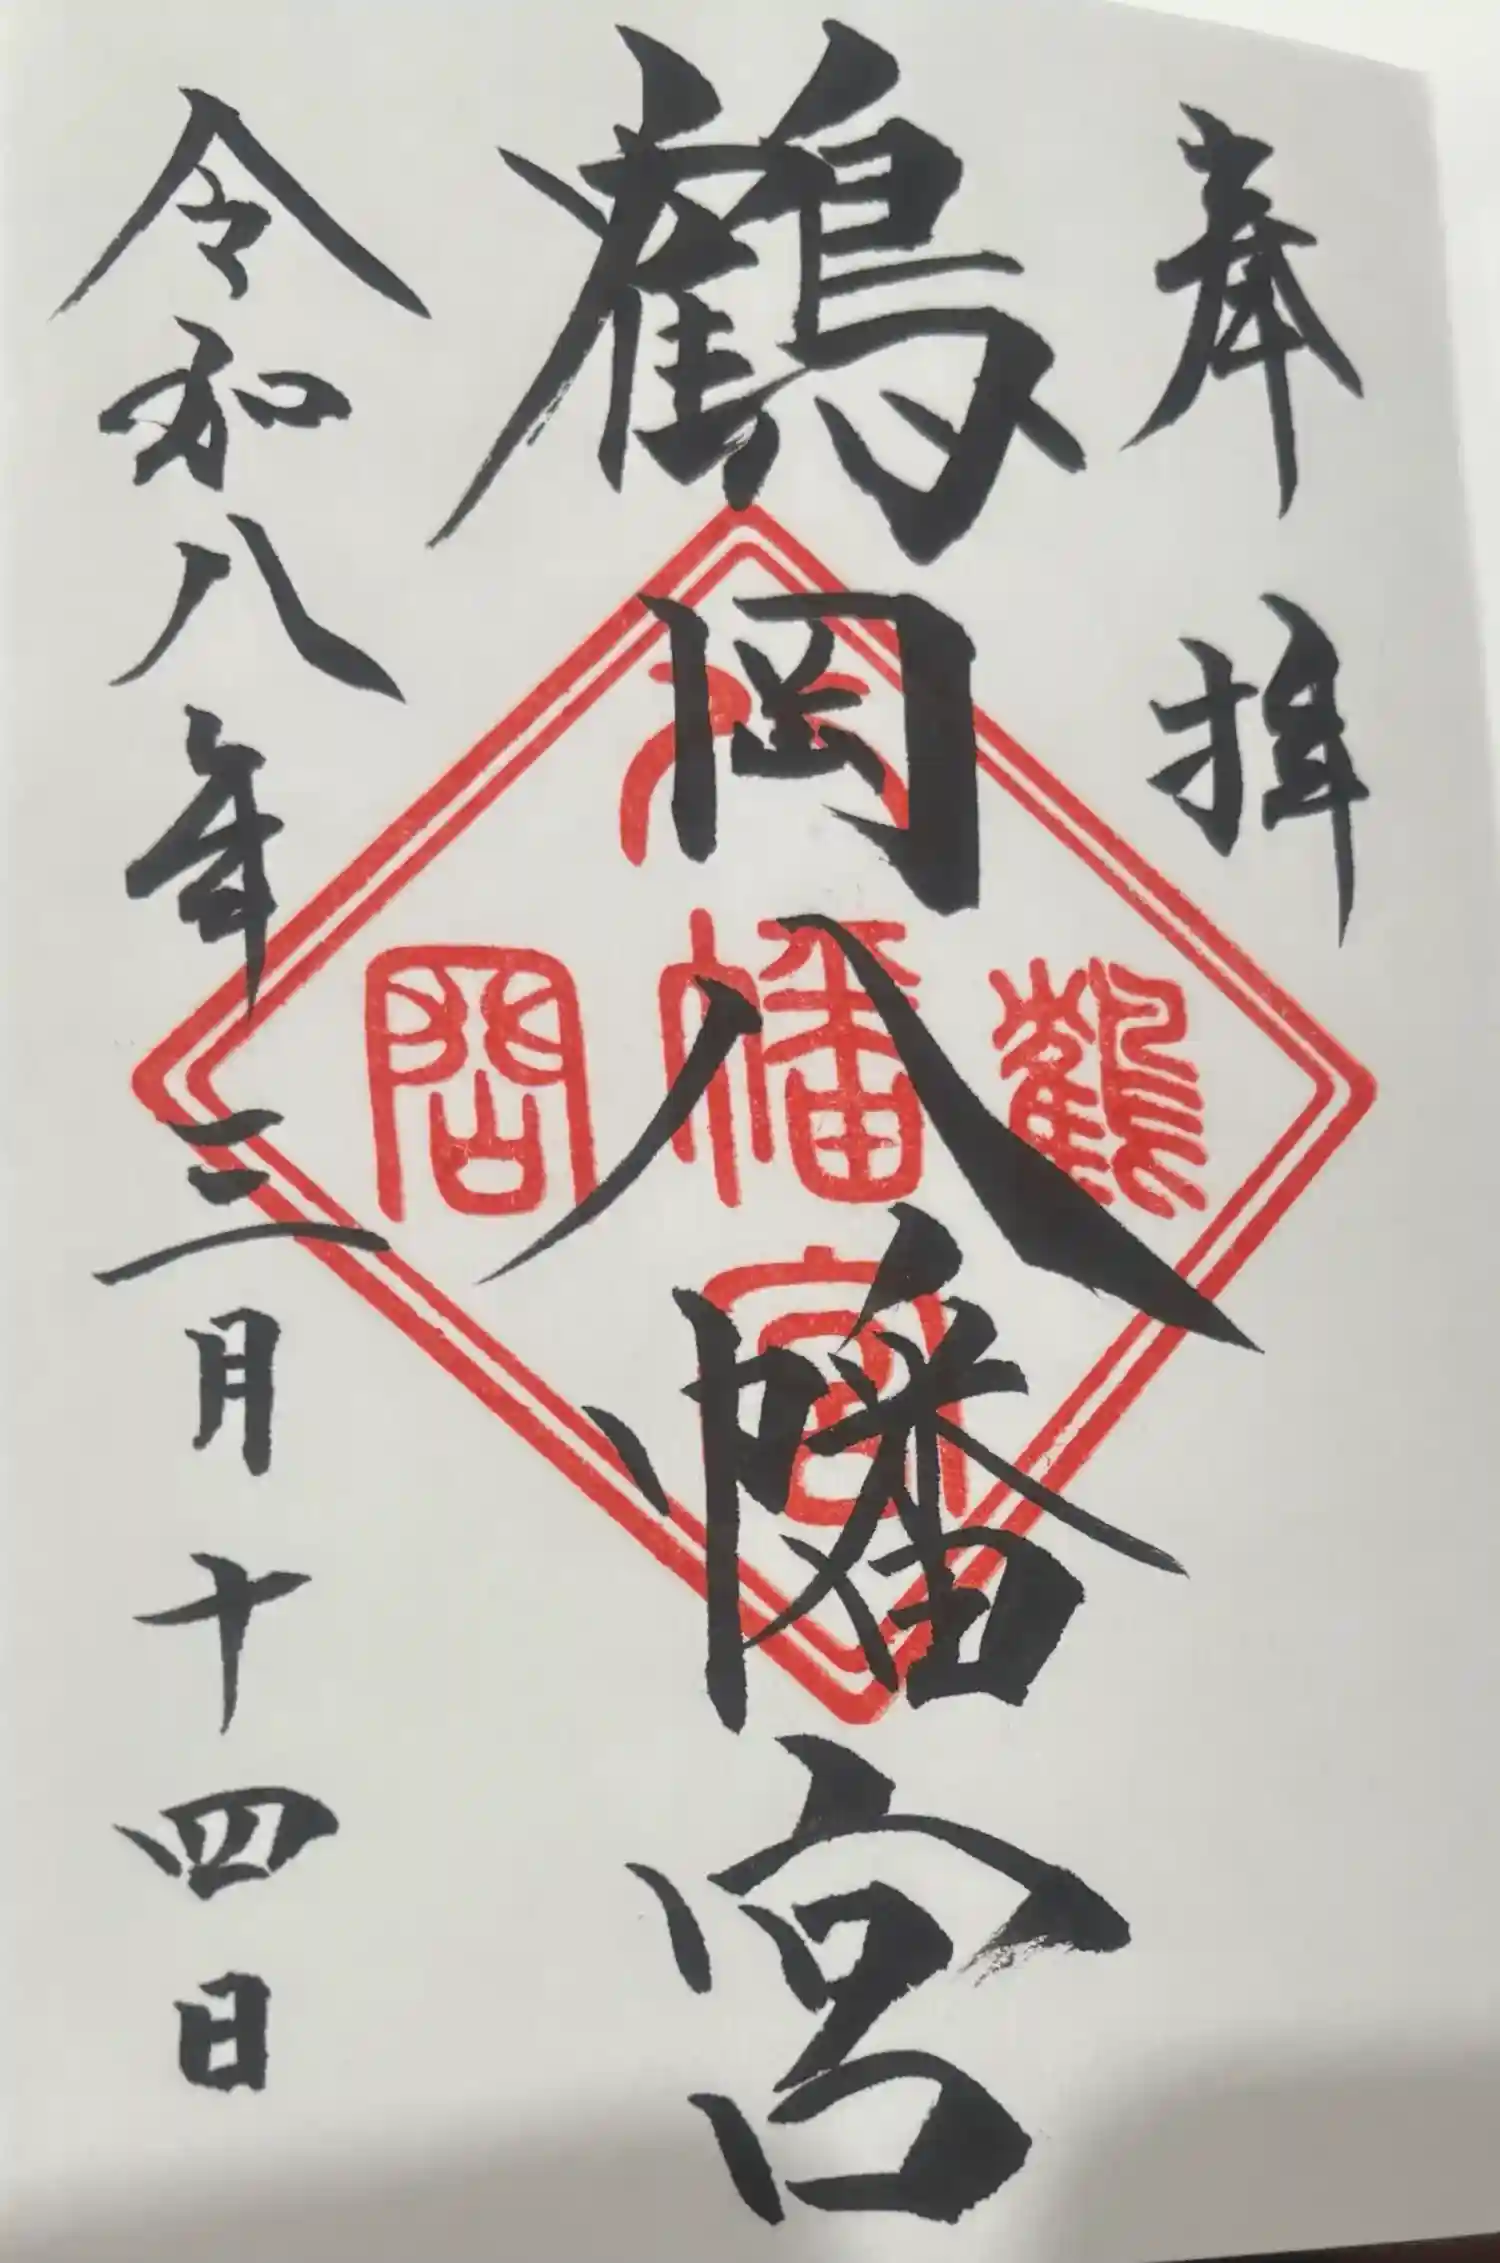 奉拝
鶴岡八幡宮
令和八年三月十四日
八
鶴幡岡
宮